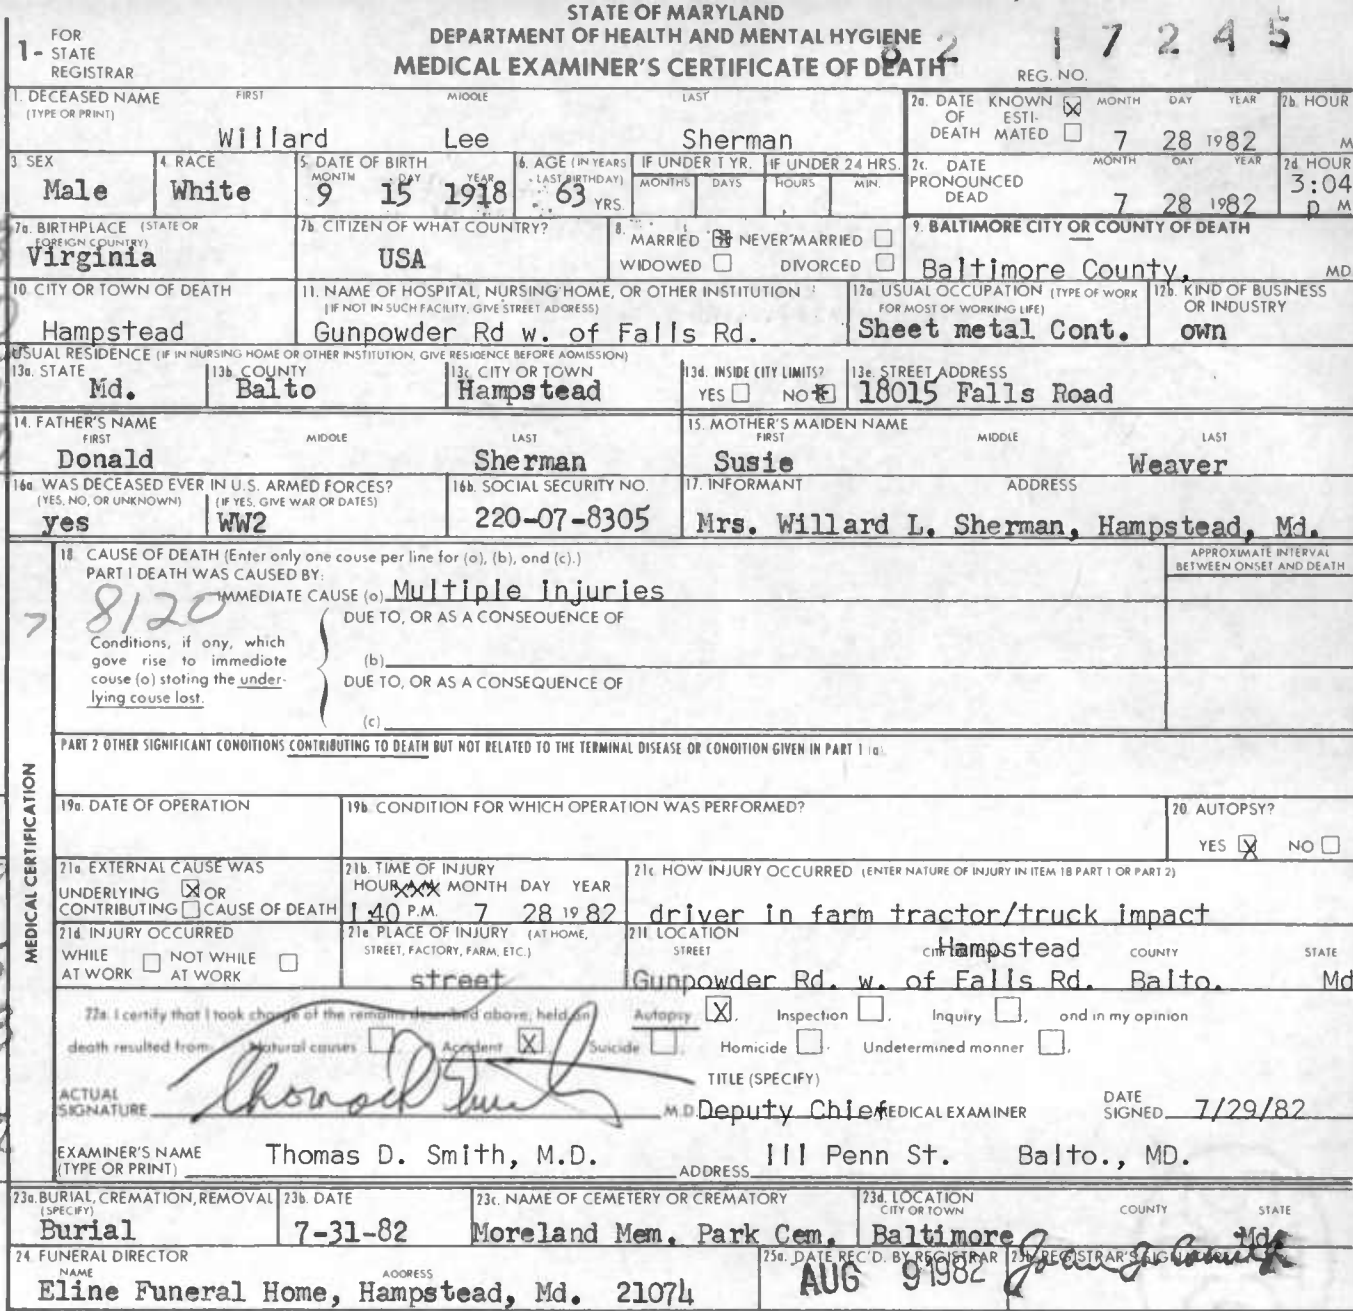 STATE OF MARYLAND
DEPARTMENT OF HEALTH AND MENTAL HYGIENE
MEDICAL EXAMINER'S CERTIFICATE OF DEATH
1- FOR STATE REGISTRAR
82 17245
REG. NO.
1. DECEASED NAME (TYPE OR PRINT) FIRST MIDDLE LAST
Willard Lee Sherman
2a. DATE OF DEATH KNOWN [X] ESTIMATED [ ] MONTH DAY YEAR
7 28 1982
2b. HOUR M
3. SEX
Male
4. RACE
White
5. DATE OF BIRTH MONTH DAY YEAR
9 15 1918
6. AGE (IN YEARS LAST BIRTHDAY)
63 YRS.
IF UNDER 1 YR. MONTHS DAYS
IF UNDER 24 HRS. HOURS MIN.
2c. DATE PRONOUNCED DEAD MONTH DAY YEAR
7 28 1982
2d HOUR
3:04 p M
7a. BIRTHPLACE (STATE OR FOREIGN COUNTRY)
Virginia
7b. CITIZEN OF WHAT COUNTRY?
USA
8. MARRIED [X] NEVER MARRIED [ ]
WIDOWED [ ] DIVORCED [ ]
9. BALTIMORE CITY OR COUNTY OF DEATH
Baltimore County, MD
10. CITY OR TOWN OF DEATH
Hampstead
11. NAME OF HOSPITAL, NURSING HOME, OR OTHER INSTITUTION
(IF NOT IN SUCH FACILITY, GIVE STREET ADDRESS)
Gunpowder Rd w. of Falls Rd.
12a. USUAL OCCUPATION (TYPE OF WORK FOR MOST OF WORKING LIFE)
Sheet metal Cont.
12b. KIND OF BUSINESS OR INDUSTRY
own
USUAL RESIDENCE (IF IN NURSING HOME OR OTHER INSTITUTION, GIVE RESIDENCE BEFORE ADMISSION)
13a. STATE
Md.
13b. COUNTY
Balto
13c. CITY OR TOWN
Hampstead
13d. INSIDE CITY LIMITS?
YES [ ] NO [X]
13e. STREET ADDRESS
18015 Falls Road
14. FATHER'S NAME FIRST MIDDLE LAST
Donald Sherman
15. MOTHER'S MAIDEN NAME FIRST MIDDLE LAST
Susie Weaver
16a. WAS DECEASED EVER IN U.S. ARMED FORCES?
(YES, NO, OR UNKNOWN) (IF YES, GIVE WAR OR DATES)
yes WW2
16b. SOCIAL SECURITY NO.
220-07-8305
17. INFORMANT ADDRESS
Mrs. Willard L. Sherman, Hampstead, Md.
MEDICAL CERTIFICATION
18. CAUSE OF DEATH (Enter only one cause per line for (a), (b), and (c).)
PART I DEATH WAS CAUSED BY:
APPROXIMATE INTERVAL BETWEEN ONSET AND DEATH
8120
IMMEDIATE CAUSE (a) Multiple injuries
DUE TO, OR AS A CONSEQUENCE OF
Conditions, if any, which gave rise to immediate cause (a) stating the underlying cause last.
(b)
DUE TO, OR AS A CONSEQUENCE OF
(c)
PART 2 OTHER SIGNIFICANT CONDITIONS CONTRIBUTING TO DEATH BUT NOT RELATED TO THE TERMINAL DISEASE OR CONDITION GIVEN IN PART 1 (a).
19a. DATE OF OPERATION
19b. CONDITION FOR WHICH OPERATION WAS PERFORMED?
20 AUTOPSY?
YES [X] NO [ ]
21a EXTERNAL CAUSE WAS
UNDERLYING [X] OR
CONTRIBUTING [ ] CAUSE OF DEATH
21b. TIME OF INJURY
HOUR MONTH DAY YEAR
1:40 P.M. 7 28 1982
21c. HOW INJURY OCCURRED (ENTER NATURE OF INJURY IN ITEM 18 PART 1 OR PART 2)
driver in farm tractor/truck impact
21d. INJURY OCCURRED
WHILE AT WORK [ ] NOT WHILE AT WORK [ ]
21e PLACE OF INJURY (AT HOME, STREET, FACTORY, FARM, ETC.)
street
21f. LOCATION
STREET Hampstead COUNTY STATE
Gunpowder Rd. w. of Falls Rd. Balto. Md
22a. I certify that I took charge of the remains described above, held an Autopsy [X], Inspection [ ], Inquiry [ ], and in my opinion
death resulted from: Natural causes [ ], Accident [X], Suicide [ ], Homicide [ ], Undetermined manner [ ],
ACTUAL SIGNATURE Thomas D Smith M.D.
TITLE (SPECIFY)
Deputy Chief MEDICAL EXAMINER
DATE SIGNED 7/29/82
EXAMINER'S NAME (TYPE OR PRINT) Thomas D. Smith, M.D.
ADDRESS 111 Penn St. Balto., MD.
23a. BURIAL, CREMATION, REMOVAL (SPECIFY)
Burial
23b. DATE
7-31-82
23c. NAME OF CEMETERY OR CREMATORY
Moreland Mem. Park Cem.
23d. LOCATION CITY OR TOWN COUNTY STATE
Baltimore Md.
24 FUNERAL DIRECTOR
NAME ADDRESS
Eline Funeral Home, Hampstead, Md. 21074
25a. DATE REC'D. BY REGISTRAR
AUG 9 1982
25b. REGISTRAR'S